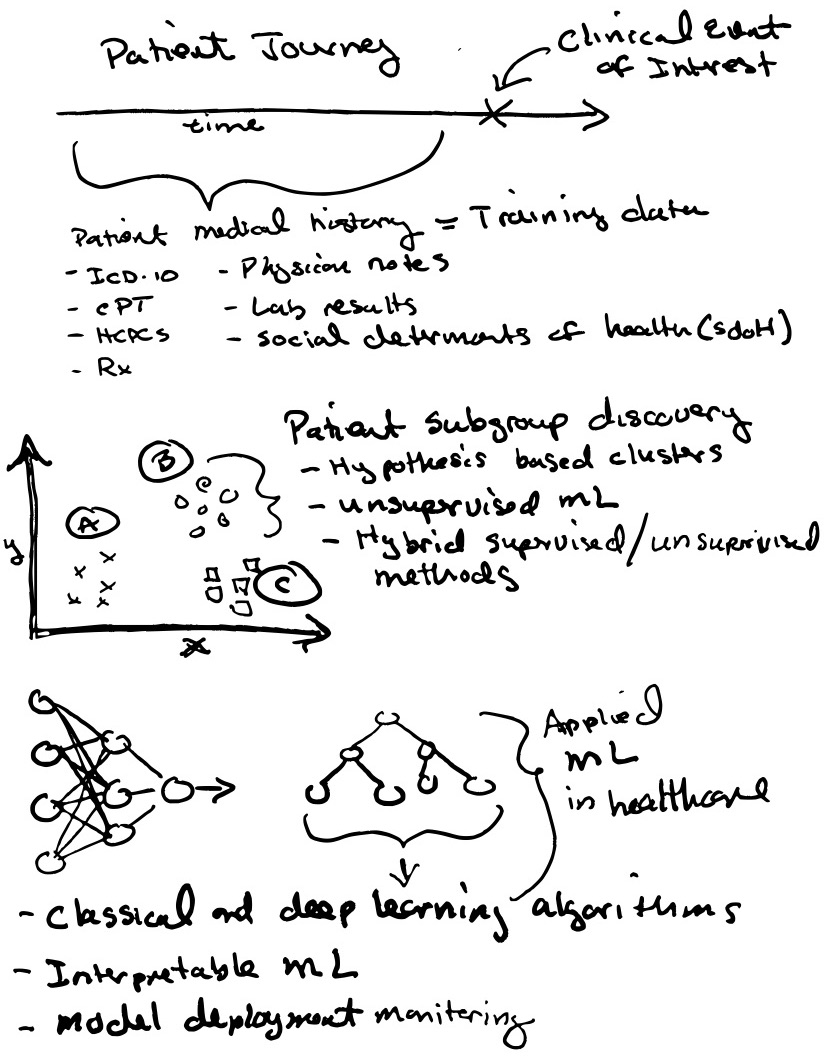 Patient Journey
Clinical Event
of Interest
time
Patient medical history = Training data
- ICD-10
- Physician notes
- CPT
- Lab results
- HCPCS
- social determents of health (SDOH)
- Rx
Patient subgroup discovery
- Hypothesis based clusters
- unsupervised ML
- Hybrid supervised/unsupervised
methods
A
B
C
y
x
Applied
ML
in healthcare
- Classical and deep learning algorithms
- Interpretable ML
- Model deployment monitoring